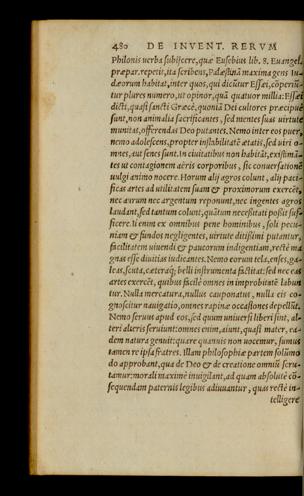 480 DE INVENT. RERVM
Philonis uerba subijcere, quæ Eusebius lib. 8. Euangel.
præpar. repetit, ita scribens, Palæstinã maxima gens Iu-
dæorum habitat, inter quos, qui dicũtur Essæi, cõperiũ-
tur plures numero, ut opinor, quã quatuor millia: Essæi
dicti, quasi sancti Græcè, quoniã Dei cultores præcipuè
sunt, non animalia sacrificantes, sed mentes suas uirtute
munitas, offerendas Deo putantes. Nemo inter eos puer,
nemo adolescens, propter instabilitatẽ ætatis, sed uiri o-
mnes, aut senes sunt. In ciuitatibus non habitãt, existimã-
tes ut contagionem aëris corporibus, sic conuersationẽ
uulgi animo nocere. Horum alij agros colunt, alij paci-
ficas artes ad utilitatem suam & proximorum exercẽt,
nec aurum nec argentum reponunt, nec ingentes agros
laudant, sed tantum colunt, quãtum necessitati possit suf-
ficere. ij enim ex omnibus pene hominibus, soli pecu-
niam & fundos negligentes, uirtute ditissimi putantur,
facilitatem uiuendi & paucorum indigentiam, rectè ma
gnas esse diuitias iudicantes. Nemo eorum tela, enses, ga-
leas, scuta, cæteraq́; belli instrumenta factitat: sed nec eas
artes exercẽt, quibus facilè omnes in improbitatẽ labun
tur. Nulla mercatura, nullus cauponatus, nulla eis co-
gnoscitur nauigatio, omnes rapinæ occasiones depellũt.
Nemo seruus apud eos, sed quum uniuersi liberi sint, al-
teri alteris seruiunt: omnes enim, aiunt, quasi mater, ea-
dem natura genuit: quare quanuis non uocemur, sumus
tamen re ipsa fratres. Illam philosophiæ partem solũmo
do approbant, qua de Deo & de creatione omniũ scru-
tamur: morali maximè inuigilant, ad quam absolutè cõ-
sequendam paternis legibus adiuuantur, quas rectè in-
telligere